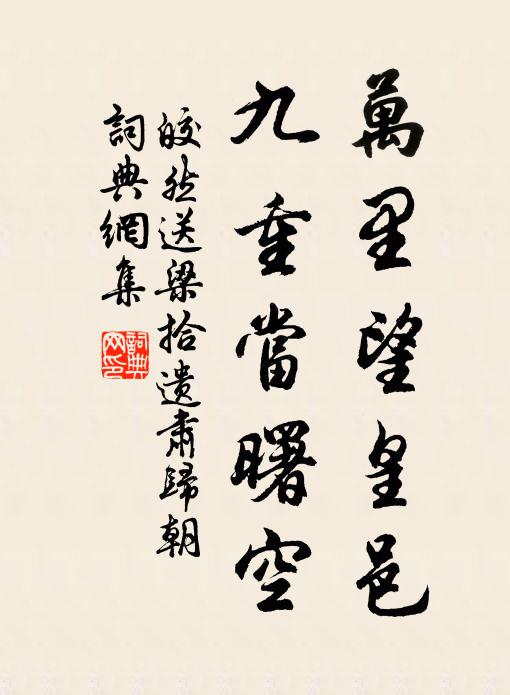 萬里望皇邑
九重當曙空
皎然送梁拾遺肅歸朝
詞典網集
詞典
网印